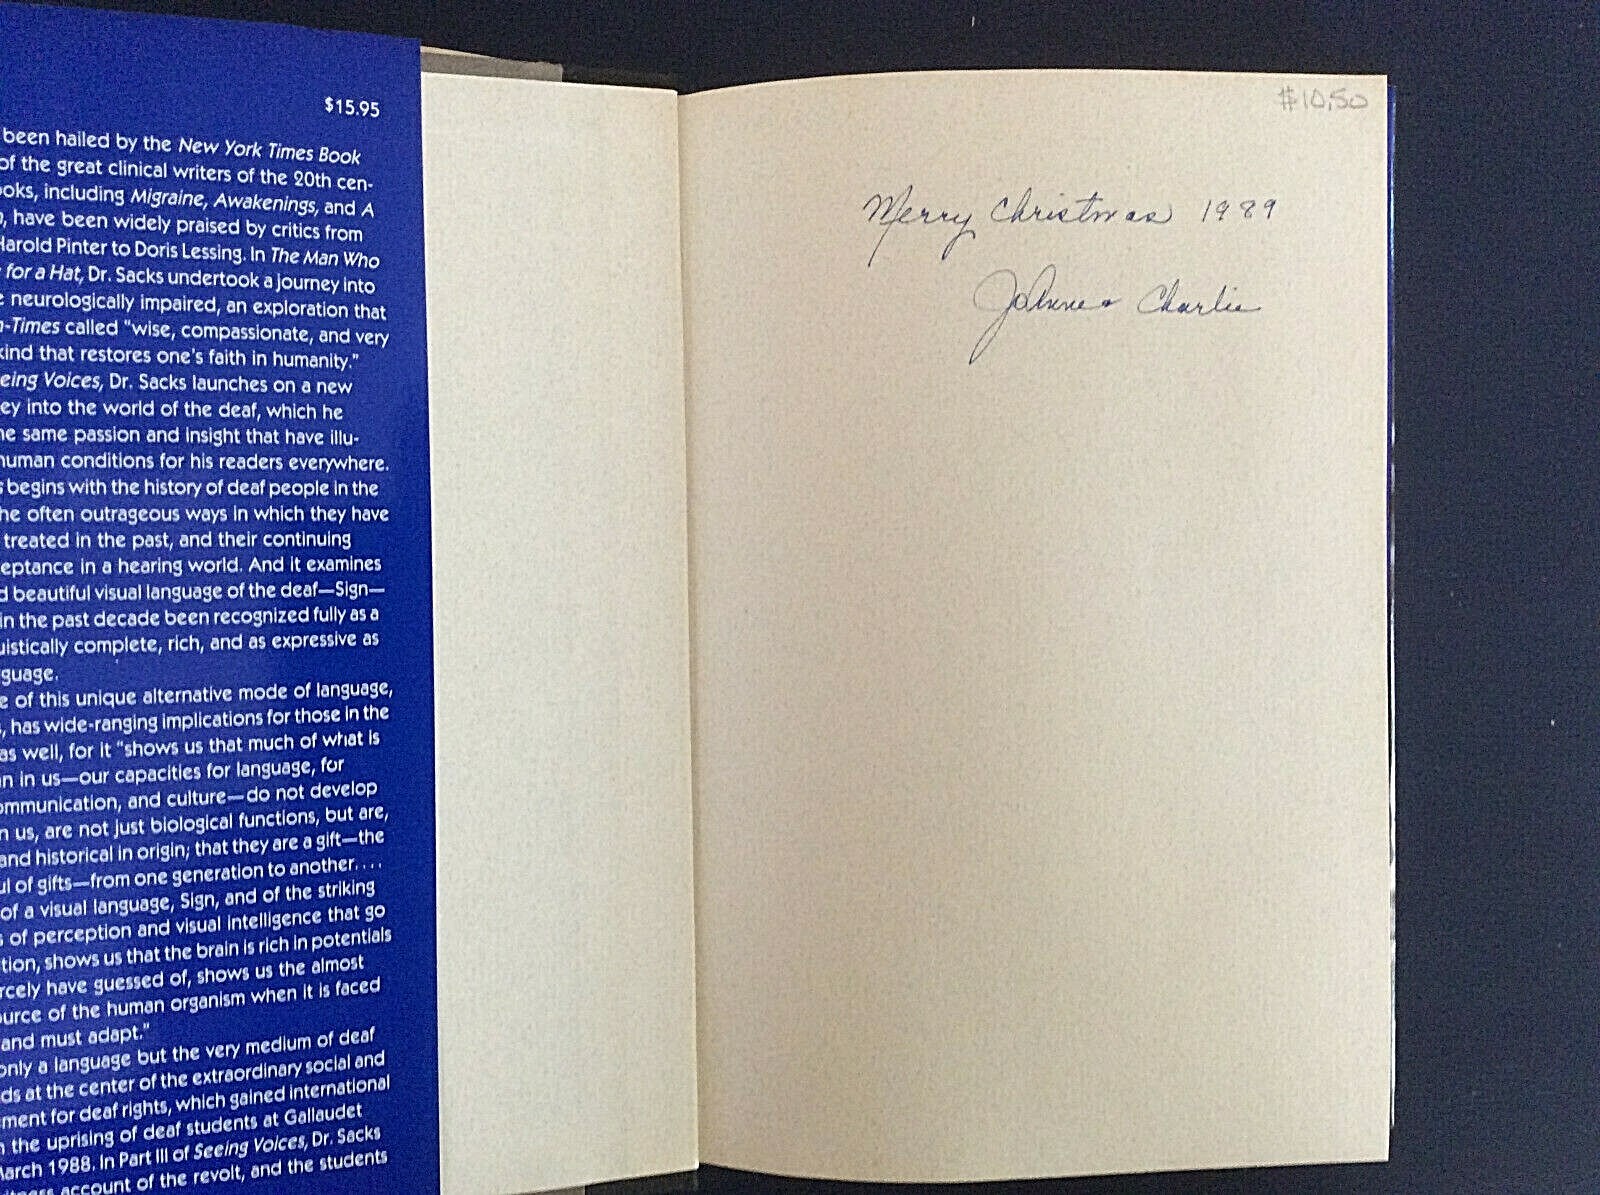 $15.95
been hailed by the New York Times Book
of the great clinical writers of the 20th cen-
including Migraine, Awakenings, and A
have been widely praised by critics from
Harold Pinter to Doris Lessing. In The Man Who
for a Hat, Dr. Sacks undertook a journey into
neurologically impaired, an exploration that
-Times called "wise, compassionate, and very
kind that restores one's faith in humanity."
eing Voices, Dr. Sacks launches on a new
ey into the world of the deaf, which he
same passion and insight that have illu-
human conditions for his readers everywhere.
begins with the history of deaf people in the
he often outrageous ways in which they have
treated in the past, and their continuing
eptance in a hearing world. And it examines
beautiful visual language of the deaf—Sign—
in the past decade been recognized fully as a
uistically complete, rich, and as expressive as
guage.
of this unique alternative mode of language,
has wide-ranging implications for those in the
as well, for it "shows us that much of what is
in us—our capacities for language, for
ommunication, and culture—do not develop
us, are not just biological functions, but are,
and historical in origin; that they are a gift—the
ul of gifts—from one generation to another....
of a visual language, Sign, and of the striking
of perception and visual intelligence that go
tion, shows us that the brain is rich in potentials
rcely have guessed of, shows us the almost
ource of the human organism when it is faced
and must adapt."
only a language but the very medium of deaf
ds at the center of the extraordinary social and
ment for deaf rights, which gained international
the uprising of deaf students at Gallaudet
March 1988. In Part III of Seeing Voices, Dr. Sacks
account of the revolt, and the students
$10.50
Merry Christmas 1989
JoAnne & Charlie